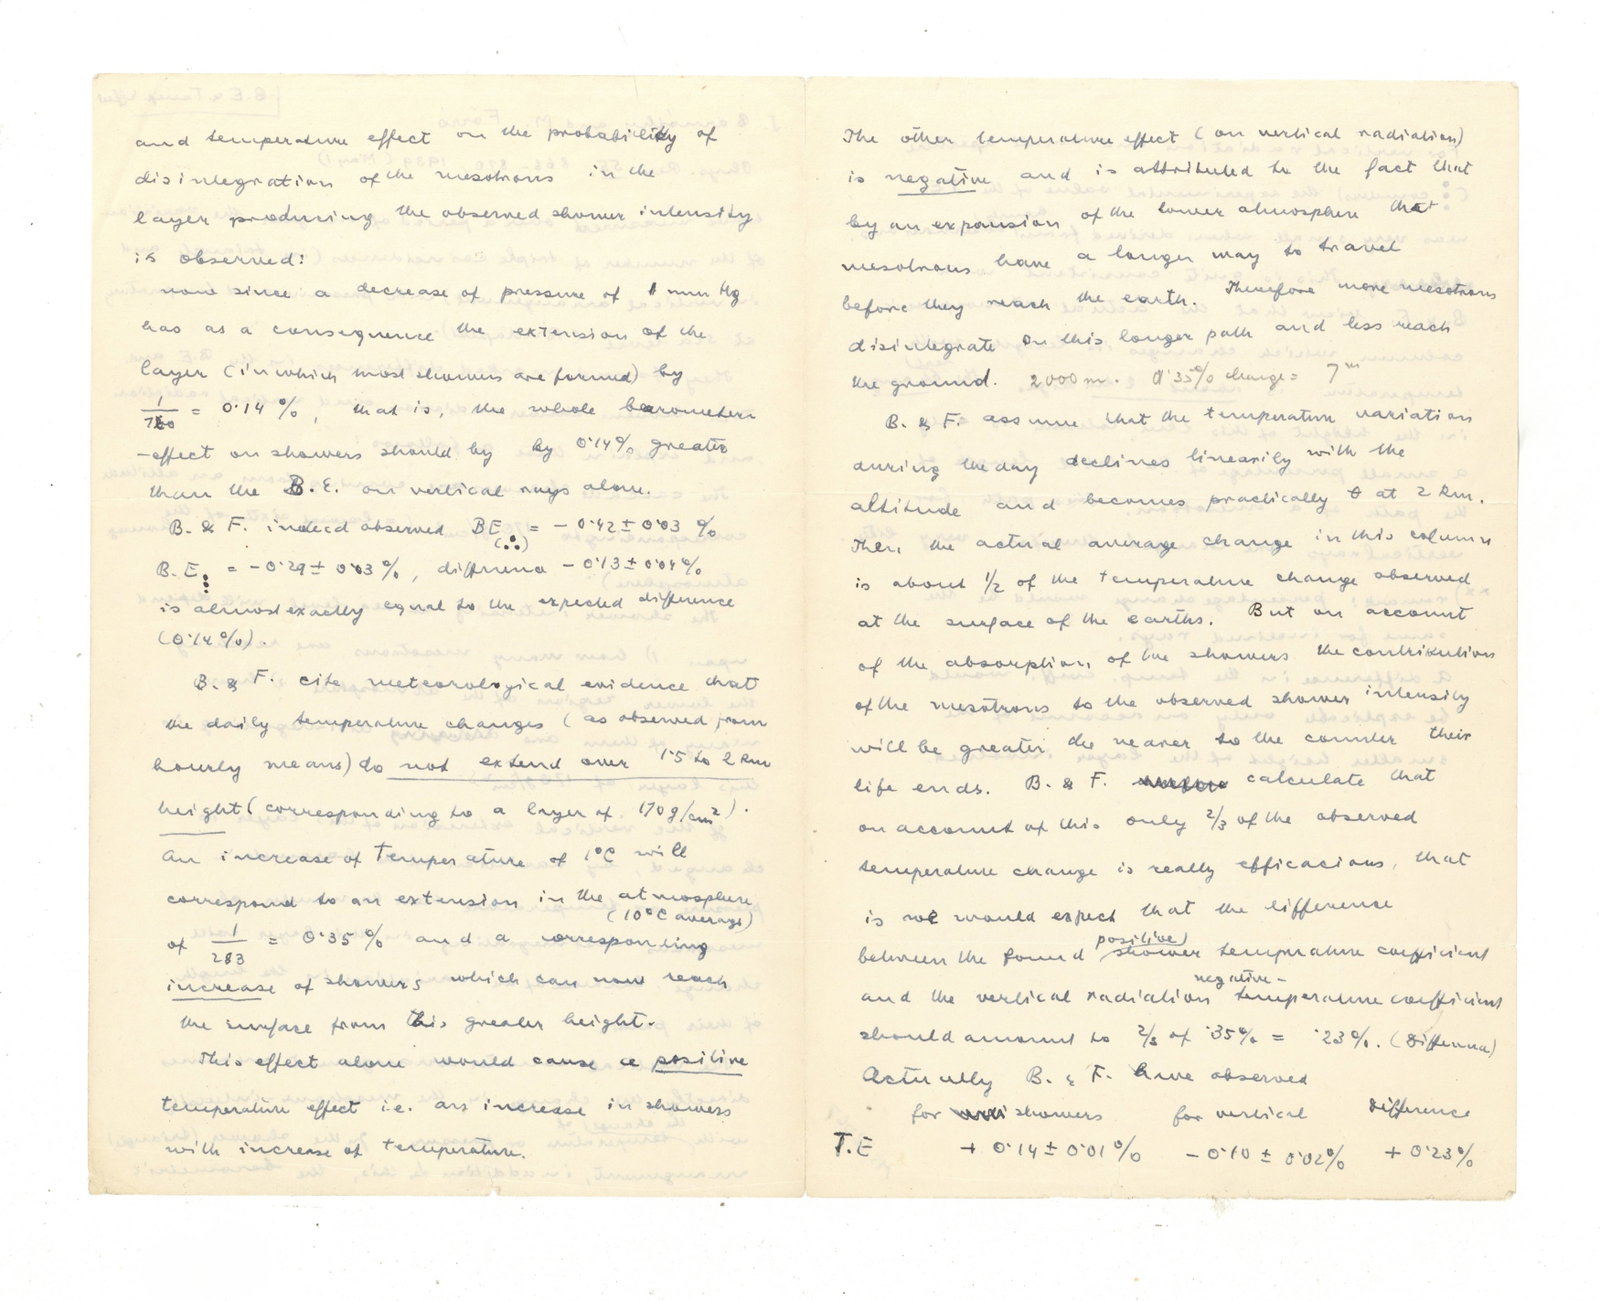 and temperature effect on the probability of
disintegration of the mesotrons in the
layer producing the observed shower intensity
is observed:
now since a decrease of pressure of 1 mm Hg
has as a consequence the extension of the
layer (in which most showers are formed) by
1/760 = 0·14 %, that is, the whole barometer
-effect on showers should by by 0·14% greater
than the B.E. on vertical rays alone.
B. & F. indeed observed BE(∴) = - 0·42 ± 0·03 %
B.E⋮ = - 0·29 ± 0·03 %, difference - 0·13 ± 0·04 %
is almost exactly equal to the expected difference
(0·14 %).
B. & F. cite meteorological evidence that
the daily temperature changes (as observed from
hourly means) do not extend over 1·5 to 2 km
height (corresponding to a layer of 170 g/cm²).
An increase of temperature of 1°C will
correspond to an extension in the atmosphere
(10°C average)
of 1/283 = 0·35 % and a corresponding
increase of showers which can now reach
the surface from this greater height.
This effect alone would cause a positive
temperature effect i.e. an increase in showers
with increase of temperature.
The other temperature effect (on vertical radiation)
is negative and is attributed to the fact that
by an expansion of the lower atmosphere that
mesotrons have a longer way to travel
before they reach the earth. Therefore more mesotrons
disintegrate on this longer path and less reach
the ground. 2000 m. 0·35% change = 7 m
B. & F. assume that the temperature variation
during the day declines linearily with the
altitude and becomes practically 0 at 2 km.
Then the actual average change in this column
is about 1/2 of the temperature change observed
at the surface of the earths. But on account
of the absorption of the showers the contribution
of the mesotrons to the observed shower intensity
will be greater the nearer to the counter their
life ends. B. & F. calculate that
on account of this only 2/3 of the observed
temperature change is really efficacious, that
is we would expect that the difference
positive)
between the found shower temperature coefficient
negative -
and the vertical radiation temperature coefficient
should amount to 2/3 of ·35% = ·23%. (Difference)
Actually B. & F. have observed
for showers for vertical Difference
T.E + 0·14 ± 0·01 % - 0·10 ± 0·02% + 0·23%